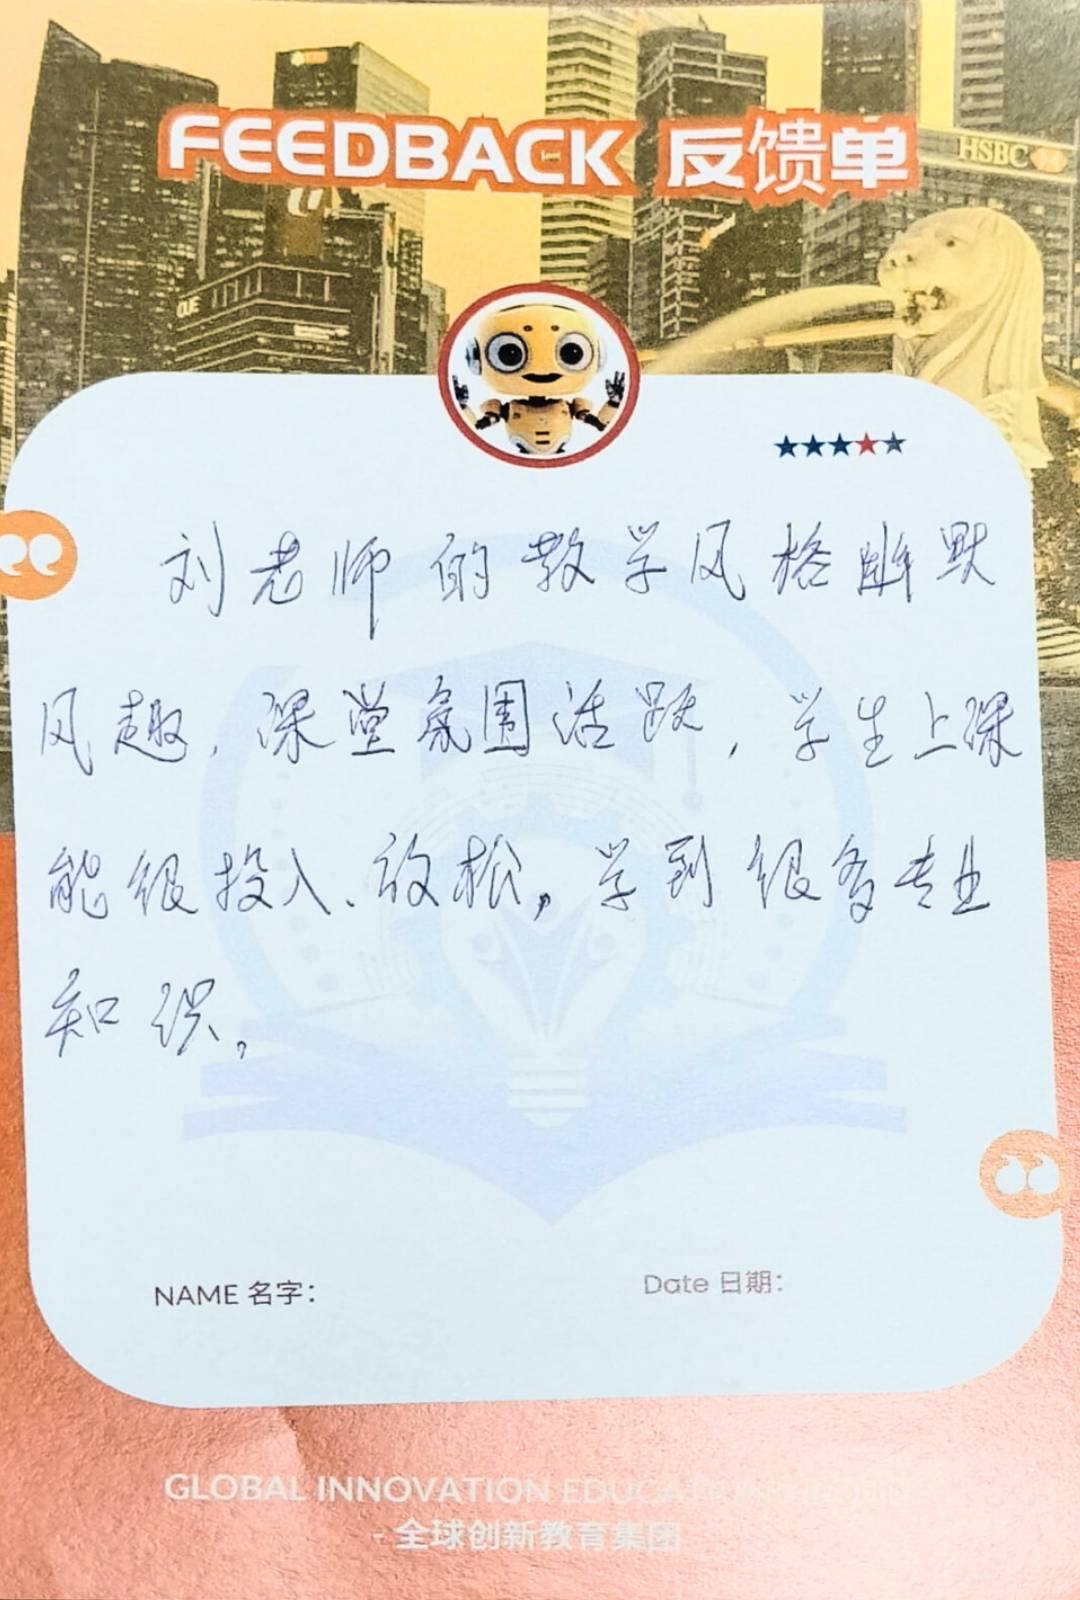 FEEDBACK 反馈单
HSBC
刘老师的教学风格幽默
风趣，课堂氛围活跃，学生上课
能很投入、放松，学到很多专业
知识，
NAME 名字：
Date 日期：
GLOBAL INNOVATION EDUCATION
- 全球创新教育集团